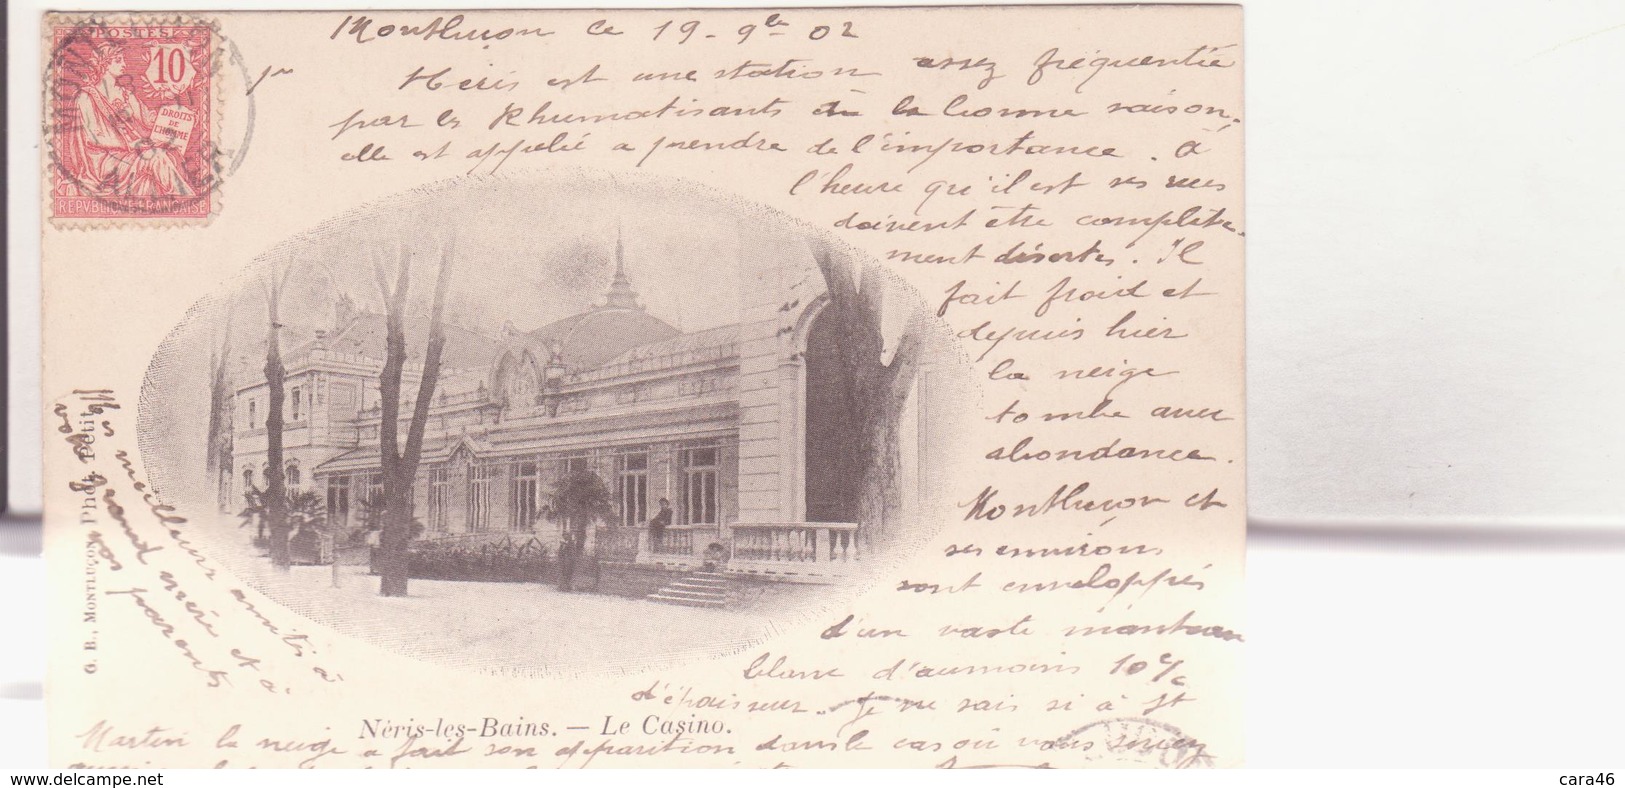 Montluçon ce 19 - 9bre 02
POSTES
10
DROITS
DE
L'HOMME
REPVBLIQVE FRANÇAISE
Néris est une station assez fréquentée
par les Rhumatisants à la bonne saison,
elle est appelée a prendre de l'importance. à
l'heure qu'il est ses rues
doivent être complète-
ment désertes. Il
fait froid et
depuis hier
la neige
tombe avec
abondance.
Montluçon et
ses environs
sont enveloppés
d'un vaste manteau
blanc d'aumoins 10 c/
d'épaisseur. Je ne sais si à St
Martin la neige a fait son apparition dans le cas où vous
Néris-les-Bains. — Le Casino.
G. B., MONTLUÇON Phot. Petit
Mes meilleurs amitiés à
votre grand mère et à
vos parents
cara46